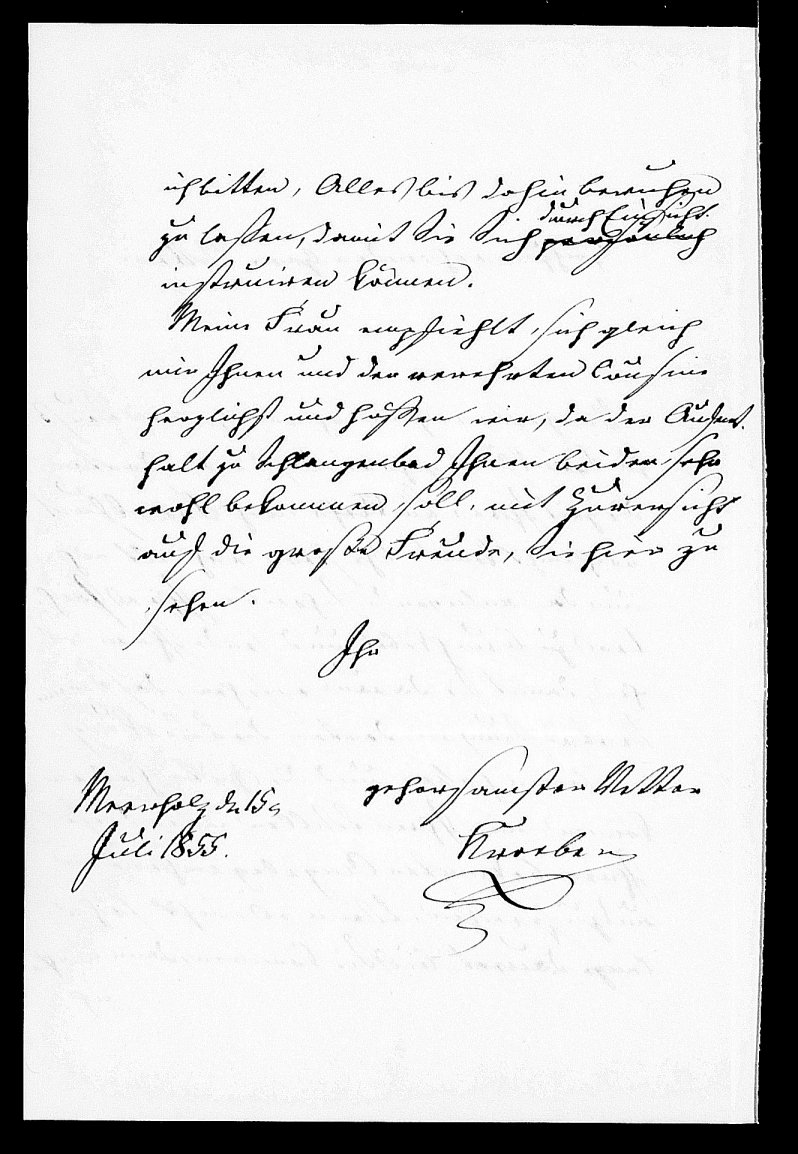 ich bitten, Alles bis dahin beruhen
durch Einsicht
zu lassen, damit Sie Sich persönlich
instruiren können.
Meine Frau empfiehlt sich gleich
mir Ihnen und der verehrten Cousine
herzlichst und hoffen wir, da der Aufent-
halt zu Schlangenbad Ihnen beiden sehr
wohl bekommen soll, mit Zuversicht
auf die große Freude, Sie hier zu
sehen.
Ihr
gehorsamster Vetter
Meerholz d. 15
Juli 1855.